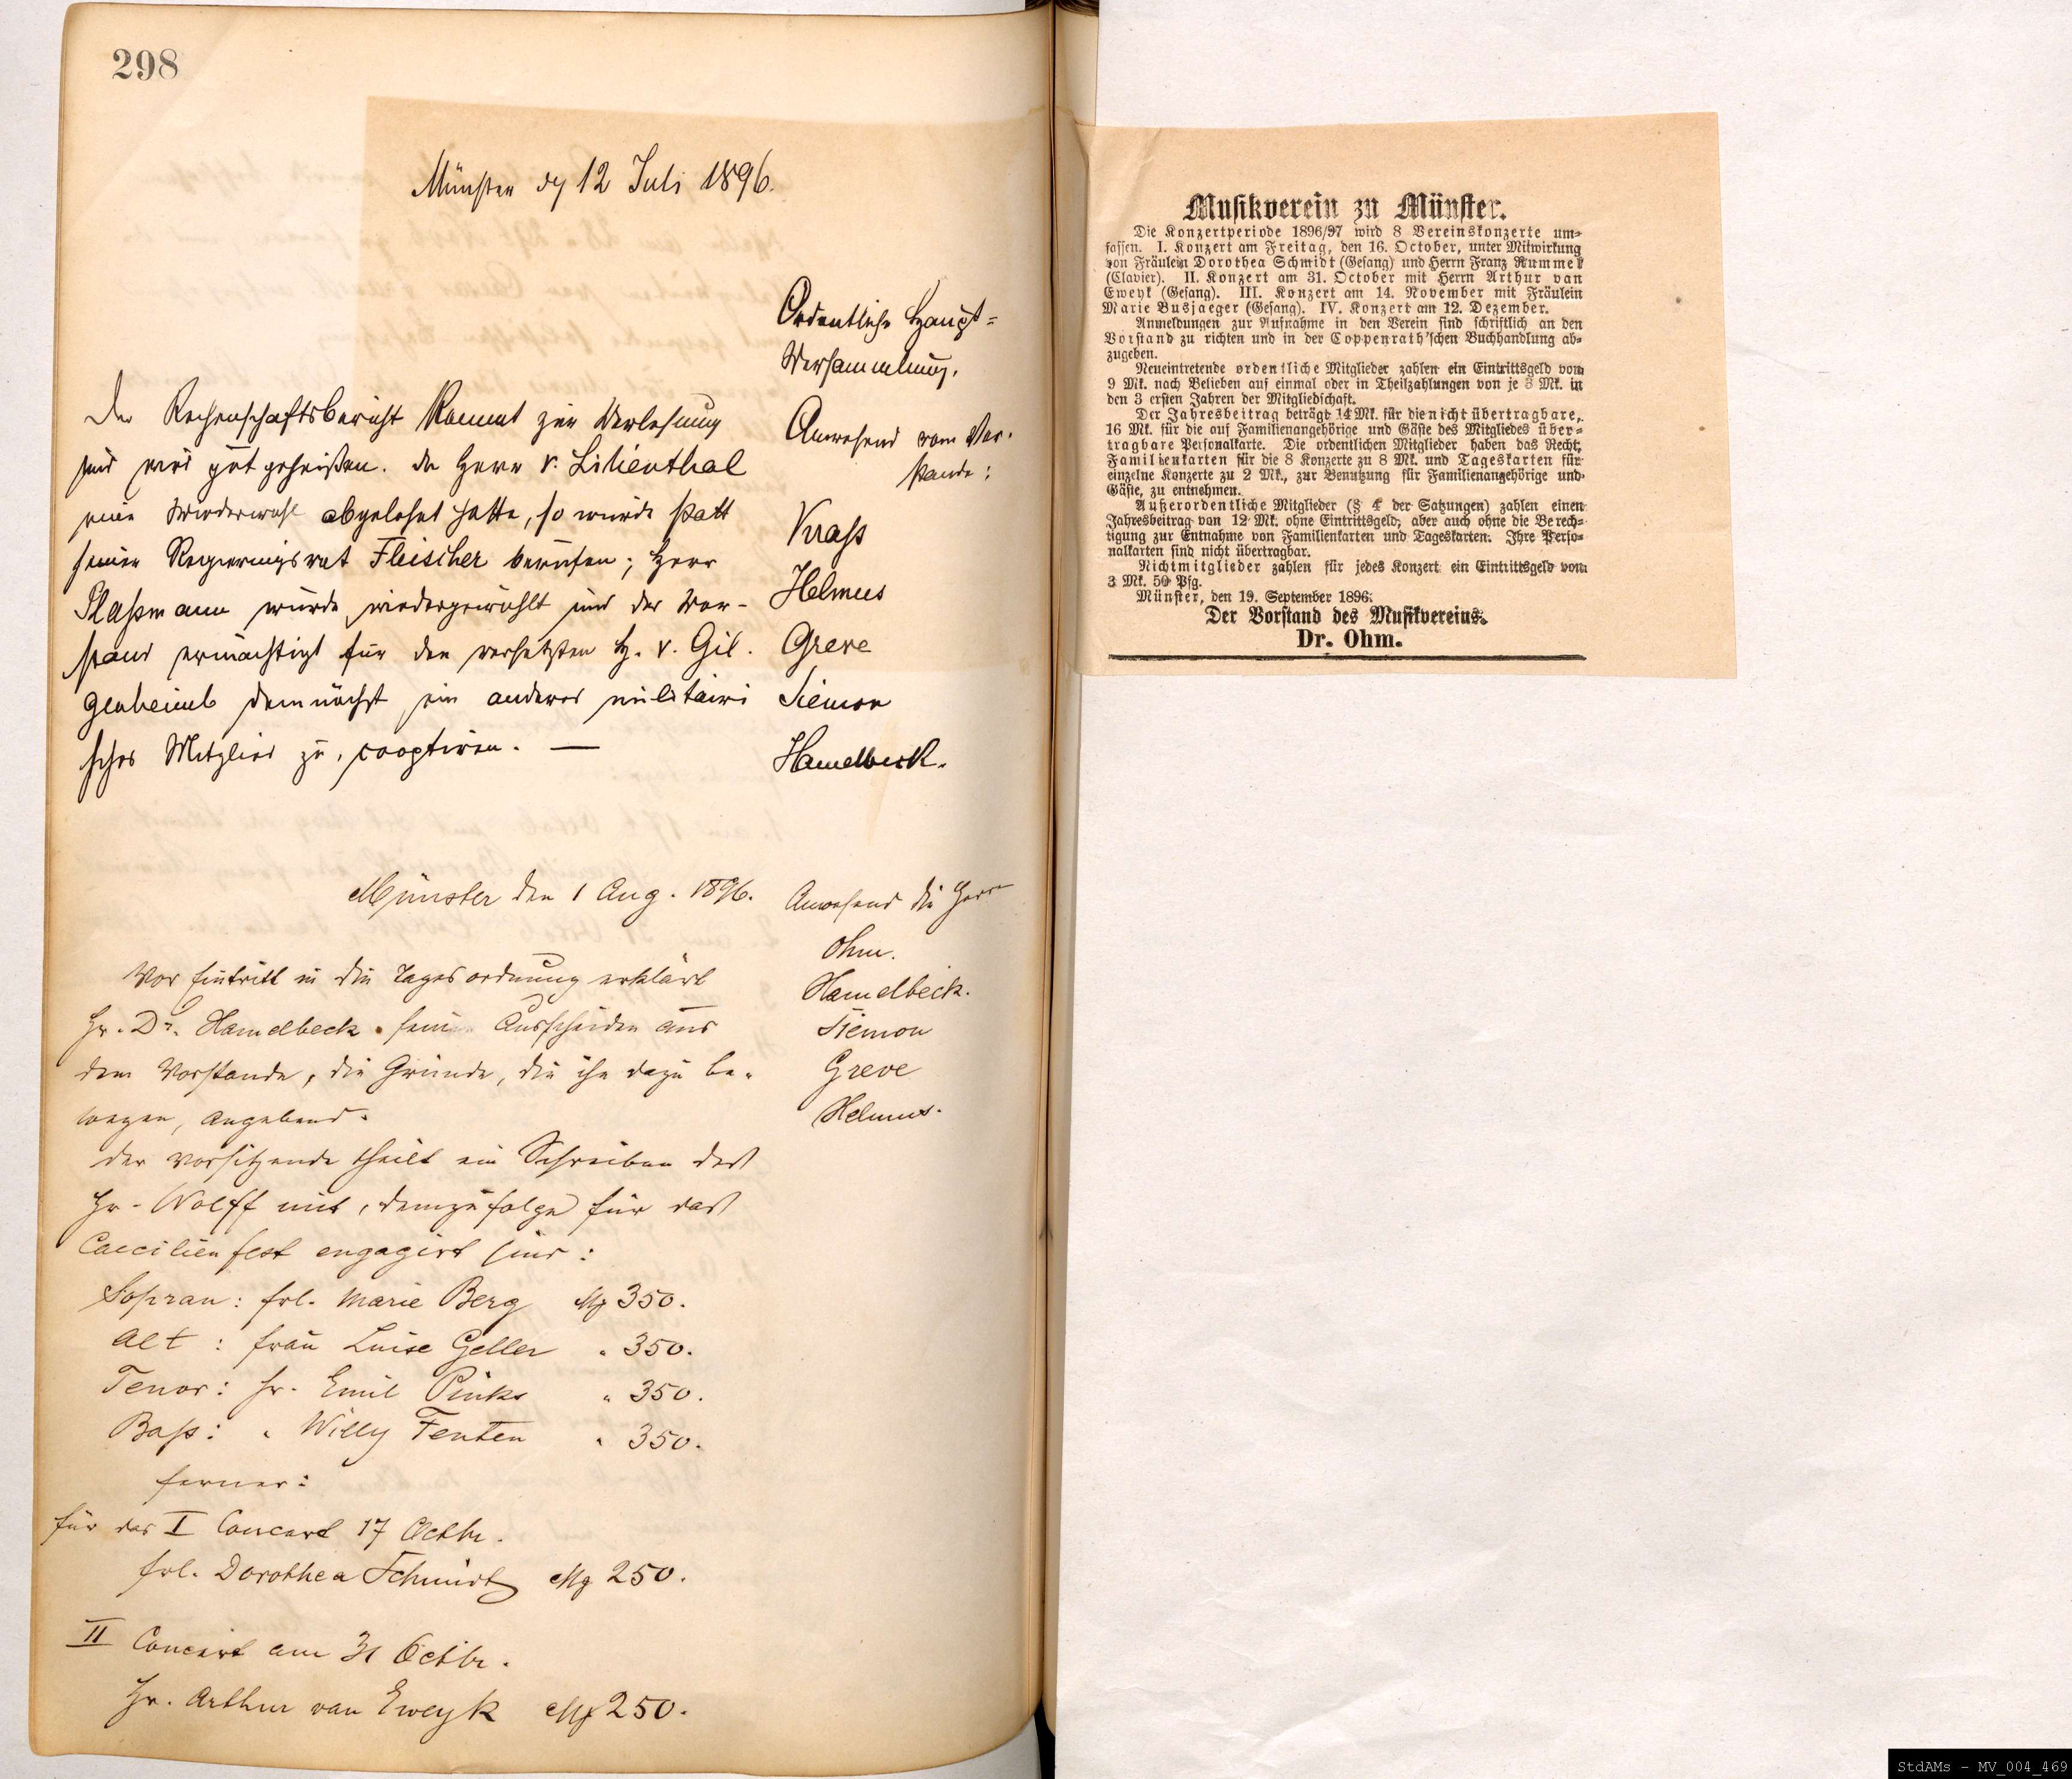 298
Münster d 12 Juli 1896.
Ordentliche Haupt=
Versammlung.
Der Rechenschaftsbericht kommt zur Verlesung
und wird gutgeheißen. Da Herr v. Lilienthal
eine Wiederwahl abgelehnt hatte, so wurde statt
seiner Regierungsrat Fleischer berufen; Herr
Plaßmann wurde wiedergewählt und der Vor-
stand ermächtigt für den versetzten H. v. Gil.
genheimb demnächst ein anderes militairi
sches Mitglied zu cooptiren. —
Anwesend vom Vor.
stande:
Krass
Helmus
Greve
Siemon
Hamelbeck.
Münster den 1 Aug. 1896.
Anwesend die Herrn
Ohm.
Hamelbeck.
Siemon
Greve
Helmus.
Vor Eintritt in die Tagesordnung erklärt
Hr. Dr. Hamelbeck sein Ausscheiden aus
dem Vorstande, die Gründe, die ihn dazu be-
wegen, angebend.
Der Vorsitzende theilt ein Schreiben des
Hr. Wolff mit, demzufolge für das
Caecilienfest engagirt sind:
Sopran: Frl. Marie Berg M 350.
Alt : Frau Luise Geller " 350.
Tenor: Hr. Emil Pinks " 350.
Baß: " Willy Fenten " 350.
ferner:
für das I Concert 17 Octbr.
Frl. Dorothea Schmidt M 250.
II Concert am 31 Octbr.
Hr. Arthur van Eweyk M 250.
Musikverein zu Münster.
Die Konzertperiode 1896/97 wird 8 Vereinskonzerte um=
fassen. I. Konzert am Freitag, den 16. October, unter Mitwirkung
von Fräulein Dorothea Schmidt (Gesang) und Herrn Franz Rummel
(Clavier). II. Konzert am 31. October mit Herrn Arthur van
Eweyk (Gesang). III. Konzert am 14. November mit Fräulein
Marie Busjaeger (Gesang). IV. Konzert am 12. Dezember.
Anmeldungen zur Aufnahme in den Verein sind schriftlich an den
Vorstand zu richten und in der Coppenrath'schen Buchhandlung ab=
zugeben.
Neueintretende ordentliche Mitglieder zahlen ein Eintrittsgeld von
9 Mk. nach Belieben auf einmal oder in Theilzahlungen von je 3 Mk. in
den 3 ersten Jahren der Mitgliedschaft.
Der Jahresbeitrag beträgt 14 Mk. für die nicht übertragbare,
16 Mk. für die auf Familienangehörige und Gäste des Mitgliedes über=
tragbare Personalkarte. Die ordentlichen Mitglieder haben das Recht,
Familienkarten für die 8 Konzerte zu 8 Mk. und Tageskarten für
einzelne Konzerte zu 2 Mk., zur Benutzung für Familienangehörige und
Gäste, zu entnehmen.
Außerordentliche Mitglieder (§ 4 der Satzungen) zahlen einen
Jahresbeitrag van 12 Mk. ohne Eintrittsgeld, aber auch ohne die Berech=
tigung zur Entnahme von Familienkarten und Tageskarten. Ihre Perso=
nalkarten sind nicht übertragbar.
Nichtmitglieder zahlen für jedes Konzert ein Eintrittsgeld von
3 Mk. 50 Pfg.
Münster, den 19. September 1896.
Der Vorstand des Musikvereins.
Dr. Ohm.
StdAMs - MV_004_469